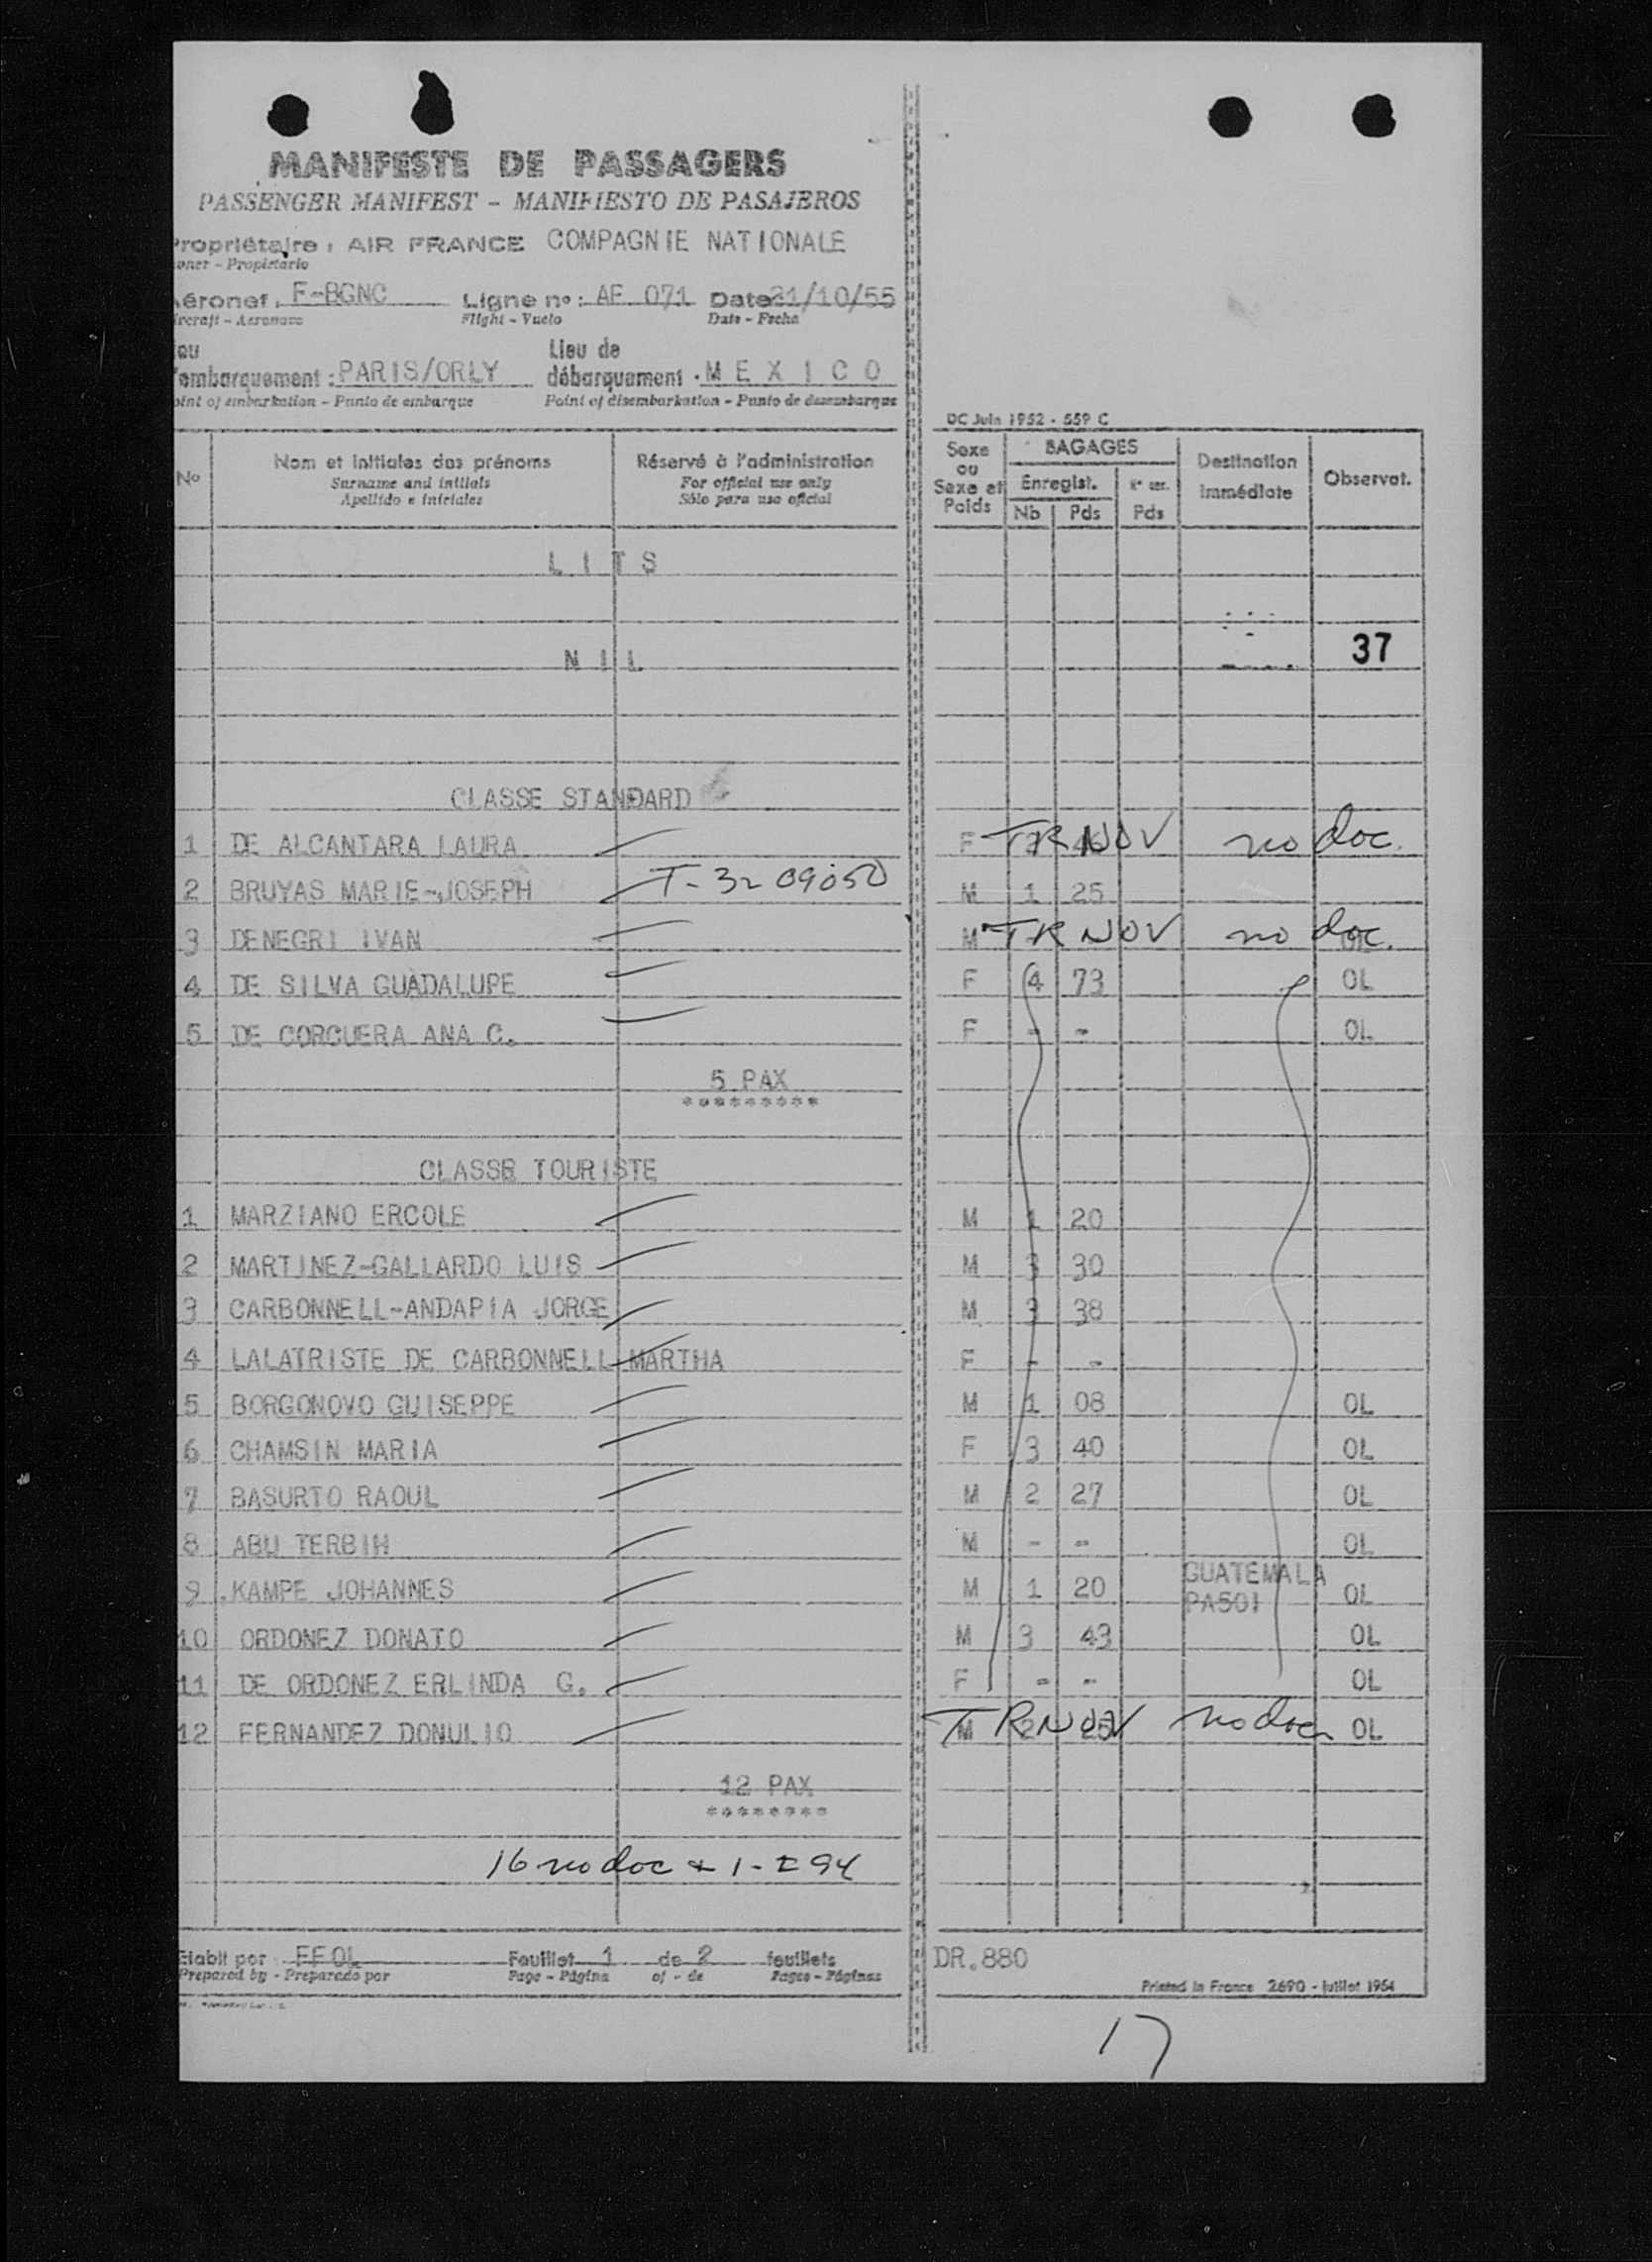 MANIFESTE DE PASSAGERS
PASSENGER MANIFEST - MANIFIESTO DE PASAJEROS
ropriétaire : AIR FRANCE COMPAGNIE NATIONALE
wner - Propietario
éronef. F-BGNC Ligne no : AF 071 Date 21/10/55
ircraft - Aeronave Flight - Vuelo Date - Fecha
eu Lieu de
'embarquement : PARIS/ORLY débarquement . M E X I C O
oint of embarkation - Punto de embarque Point of disembarkation - Punto de desembarque
DC Juin 1952 - 559 C
No Nom et initiales des prénoms Réservé à l'administration Sexe ou Sexe et Poids BAGAGES Destination immédiate Observat.
Surname and initials For official use only Enregist.
Apellido e iniciales Sólo para uso oficial Nb Pds Pds
L I T S
37
N I L
CLASSE STANDARD
1 DE ALCANTARA LAURA F TR NOV no doc.
2 BRUYAS MARIE-JOSEPH T-3209050 M 1 25
3 DENEGRI IVAN M TR NOV no doc.
4 DE SILVA GUADALUPE F 4 73 OL
5 DE CORCUERA ANA C. F - - OL
5 PAX
*********
CLASSE TOURISTE
1 MARZIANO ERCOLE M 1 20
2 MARTINEZ-GALLARDO LUIS M 3 30
3 CARBONNELL-ANDAPIA JORGE M 3 38
4 LALATRISTE DE CARBONNELL MARTHA F - -
5 BORGONOVO GUISEPPE M 1 08 OL
6 CHAMSIN MARIA F 3 40 OL
7 BASURTO RAOUL M 2 27 OL
8 ABU TERBIH M - - OL
9 .KAMPE JOHANNES M 1 20 GUATEMALA PA501 OL
10 ORDONEZ DONATO M 3 43 OL
11 DE ORDONEZ ERLINDA G. F - - OL
12 FERNANDEZ DONULIO M 2 25 TR NOV no doc OL
12 PAX
********
16 no doc & 1-I 94
Etabli par FFOL Feuillet 1 de 2 feuillets DR.880
Prepared by - Preparado por Page - Página of - de Pages - Páginas
Printed in France 2690 - juillet 1954
17